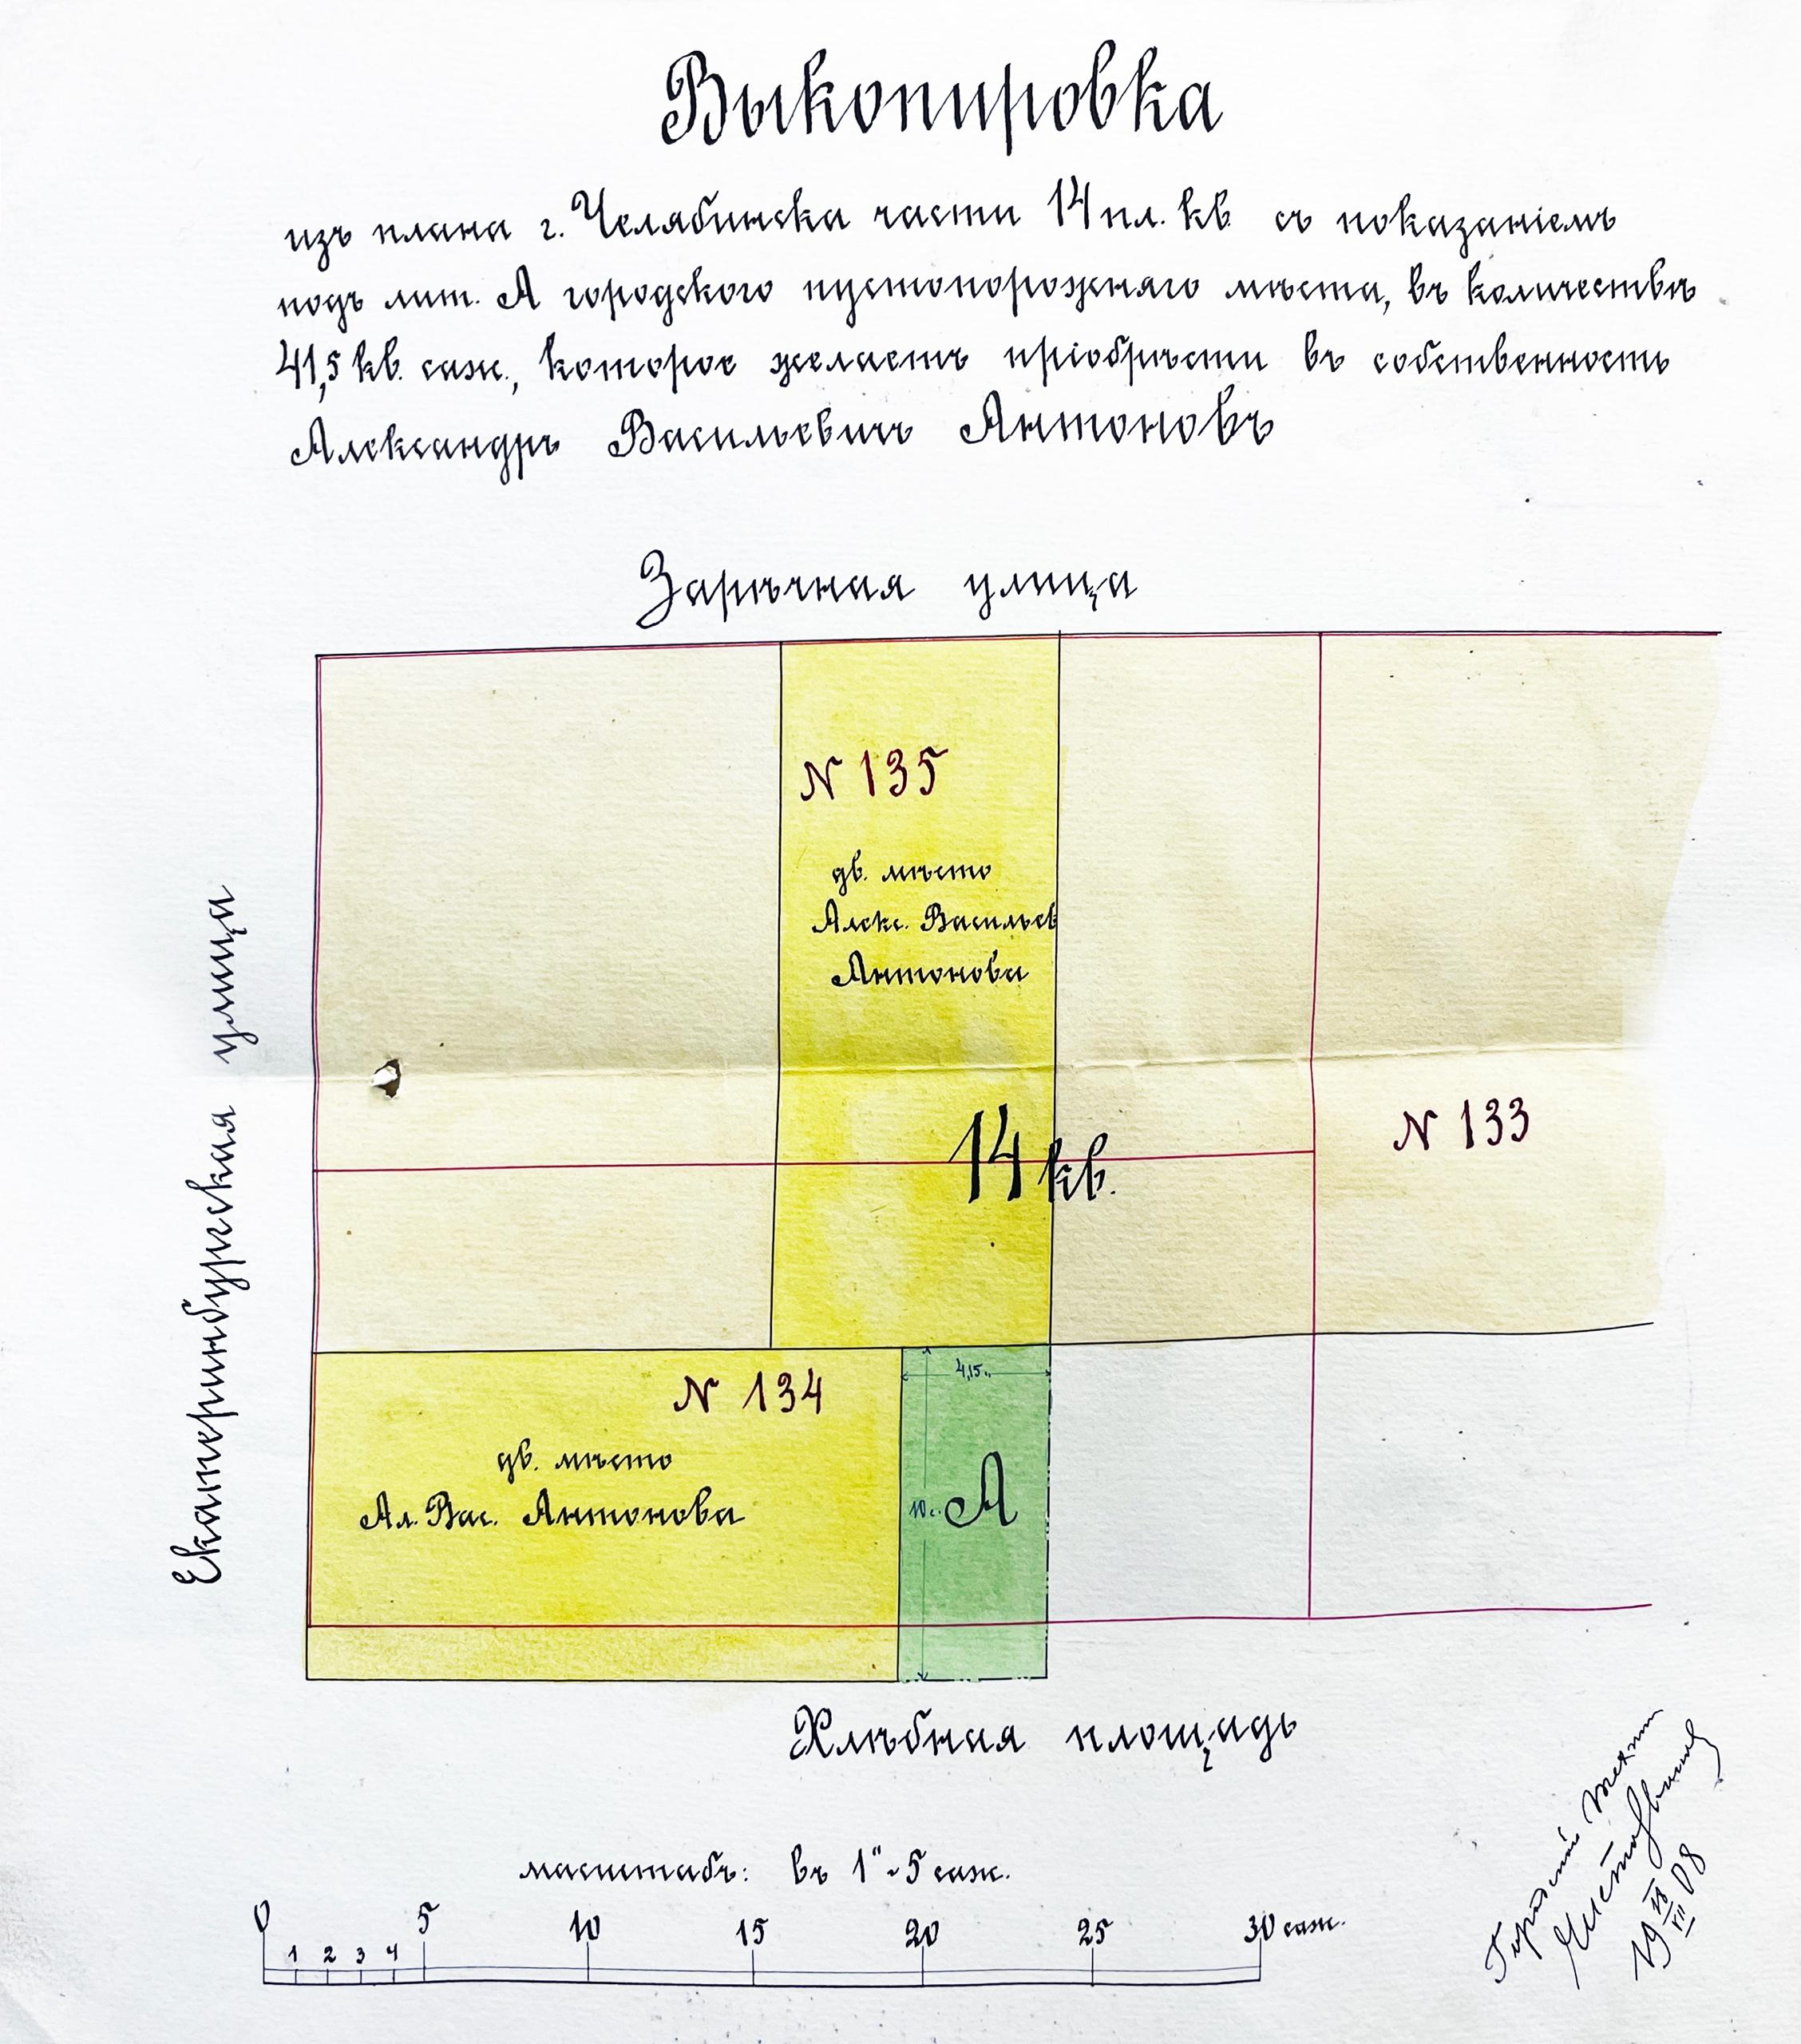 Выкопировка
изъ плана г. Челябинска части 14 пл. кв. съ показаніемъ
подъ лит. А городского пустопорожняго мѣста, въ количествѣ
41,5 кв. саж., которое желаетъ пріобрѣсти въ собственность
Александръ Васильевичъ Антоновъ
Зарѣчная улица
N 135
дв. мѣсто
Алекс. Васильев
Антонова
14 кв.
N 133
Екатеринбургская улица
N 134
дв. мѣсто
Ал. Вас. Антонова
4,15 с.
10 с.
А
Хлѣбная площадь
масштабъ: въ 1" - 5 саж.
0 1 2 3 4 5 10 15 20 25 30 саж.
Городской техник